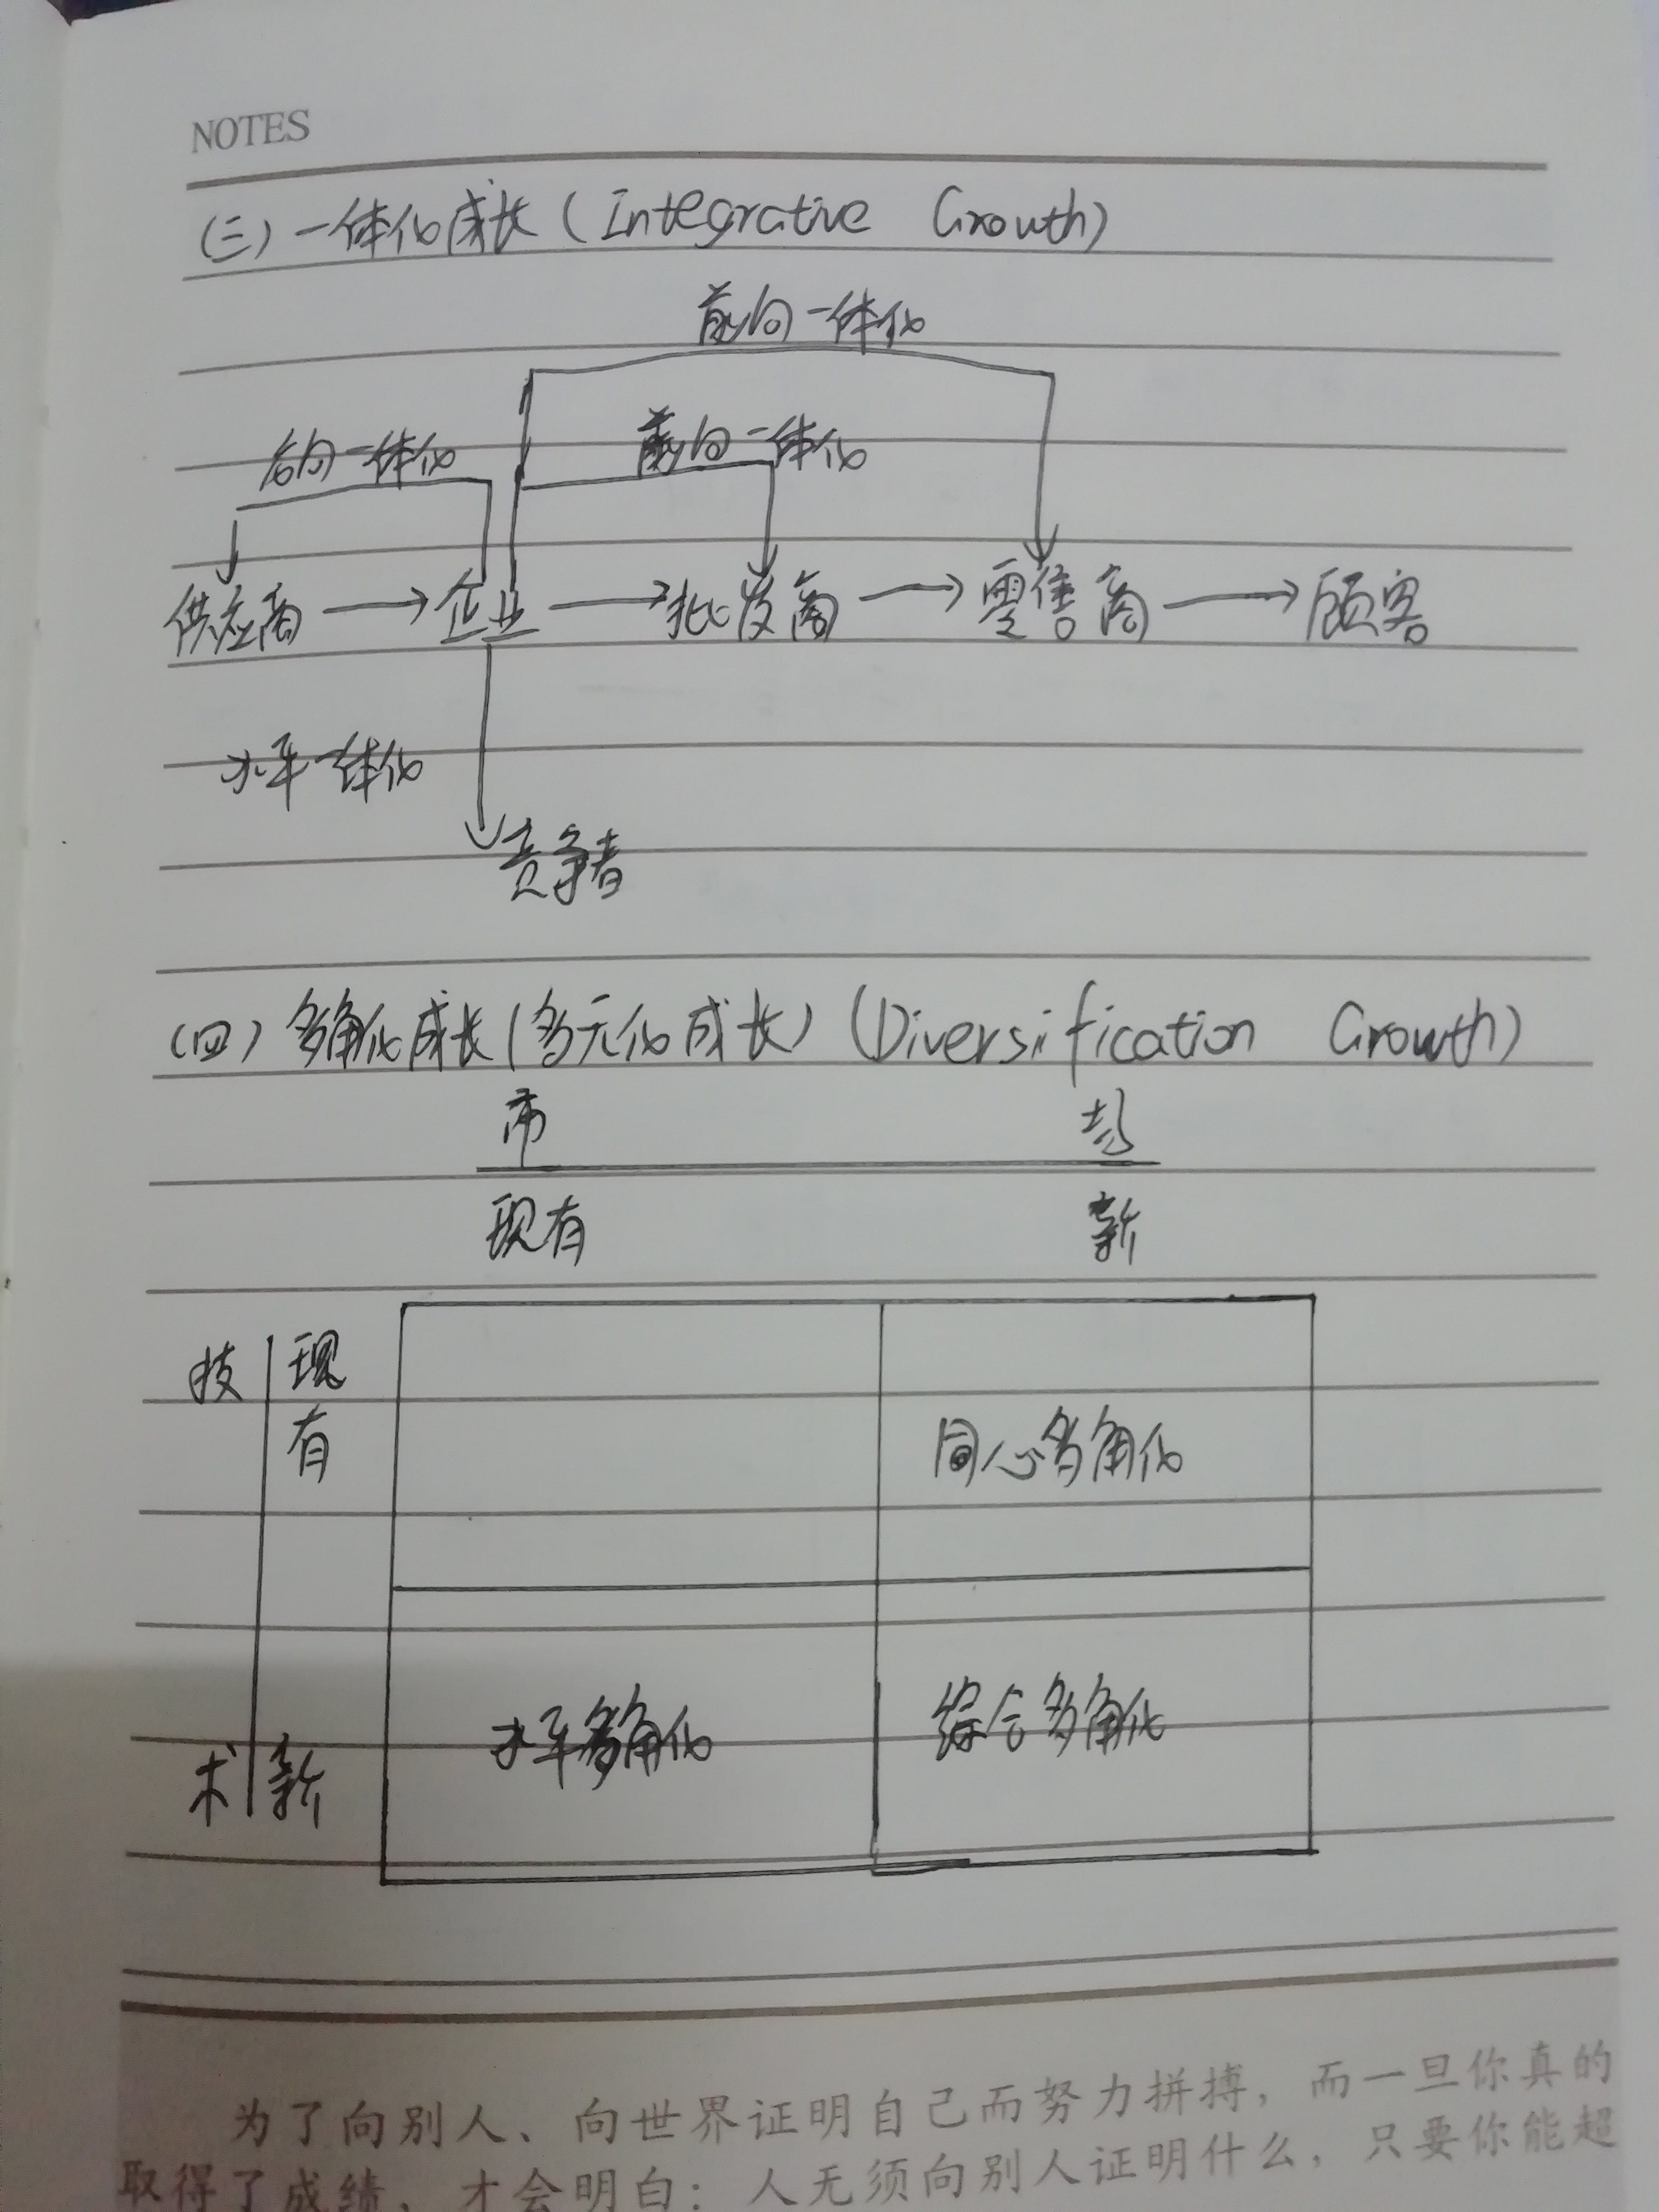 NOTES
(三)一体化成长(Integrative Growth)
前向一体化
后向一体化 前向一体化
供应商 → 企业 → 批发商 → 零售商 → 顾客
水平一体化
竞争者
(四)多角化成长(多元化成长)(Diversification Growth)
市 场
现有 新
技 现
有
同心多角化
水平多角化 综合多角化
术 新
为了向别人、向世界证明自己而努力拼搏，而一旦你真的
取得了成绩，才会明白：人无须向别人证明什么，只要你能超